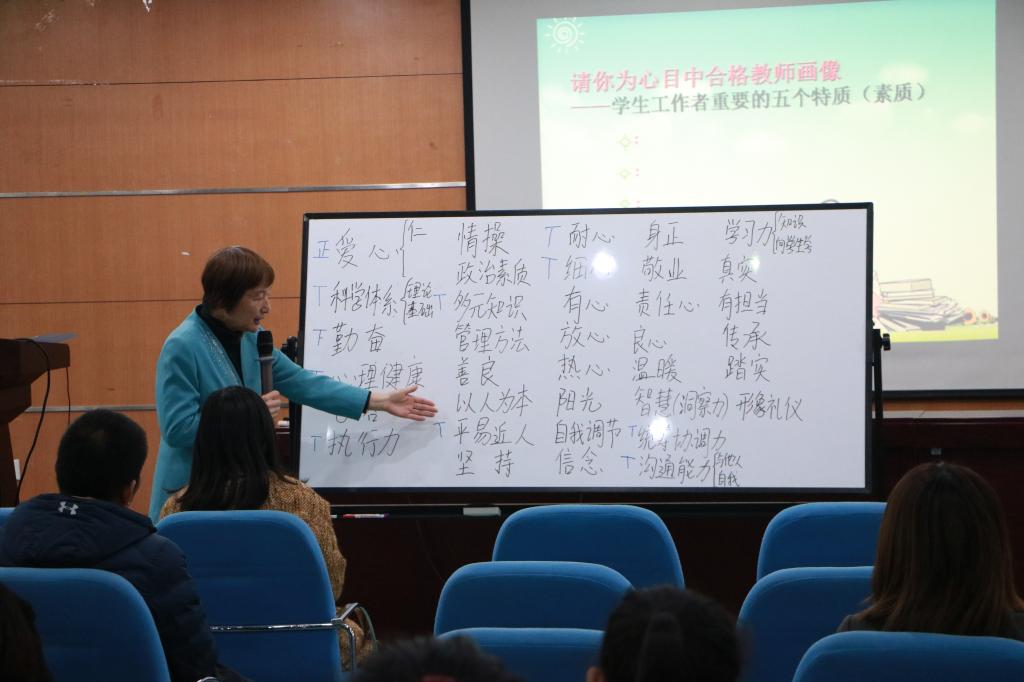 请你为心目中合格教师画像
——学生工作者重要的五个特质（素质）
正 爱心{仁 情操 丅耐心 身正 学习力{知识 向学生学
政治素质 丅细心 敬业 真实
丅科学体系{理论 基础 丅多元知识 有心 责任心 有担当
丅勤奋 管理方法 放心 良心 传承
心理健康 善良 热心 温暖 踏实
以人为本 阳光 智慧(洞察力) 形象礼仪
丅执行力 丅平易近人 自我调节 丅统筹协调力
坚持 信念 丅沟通能力{与他人 自我